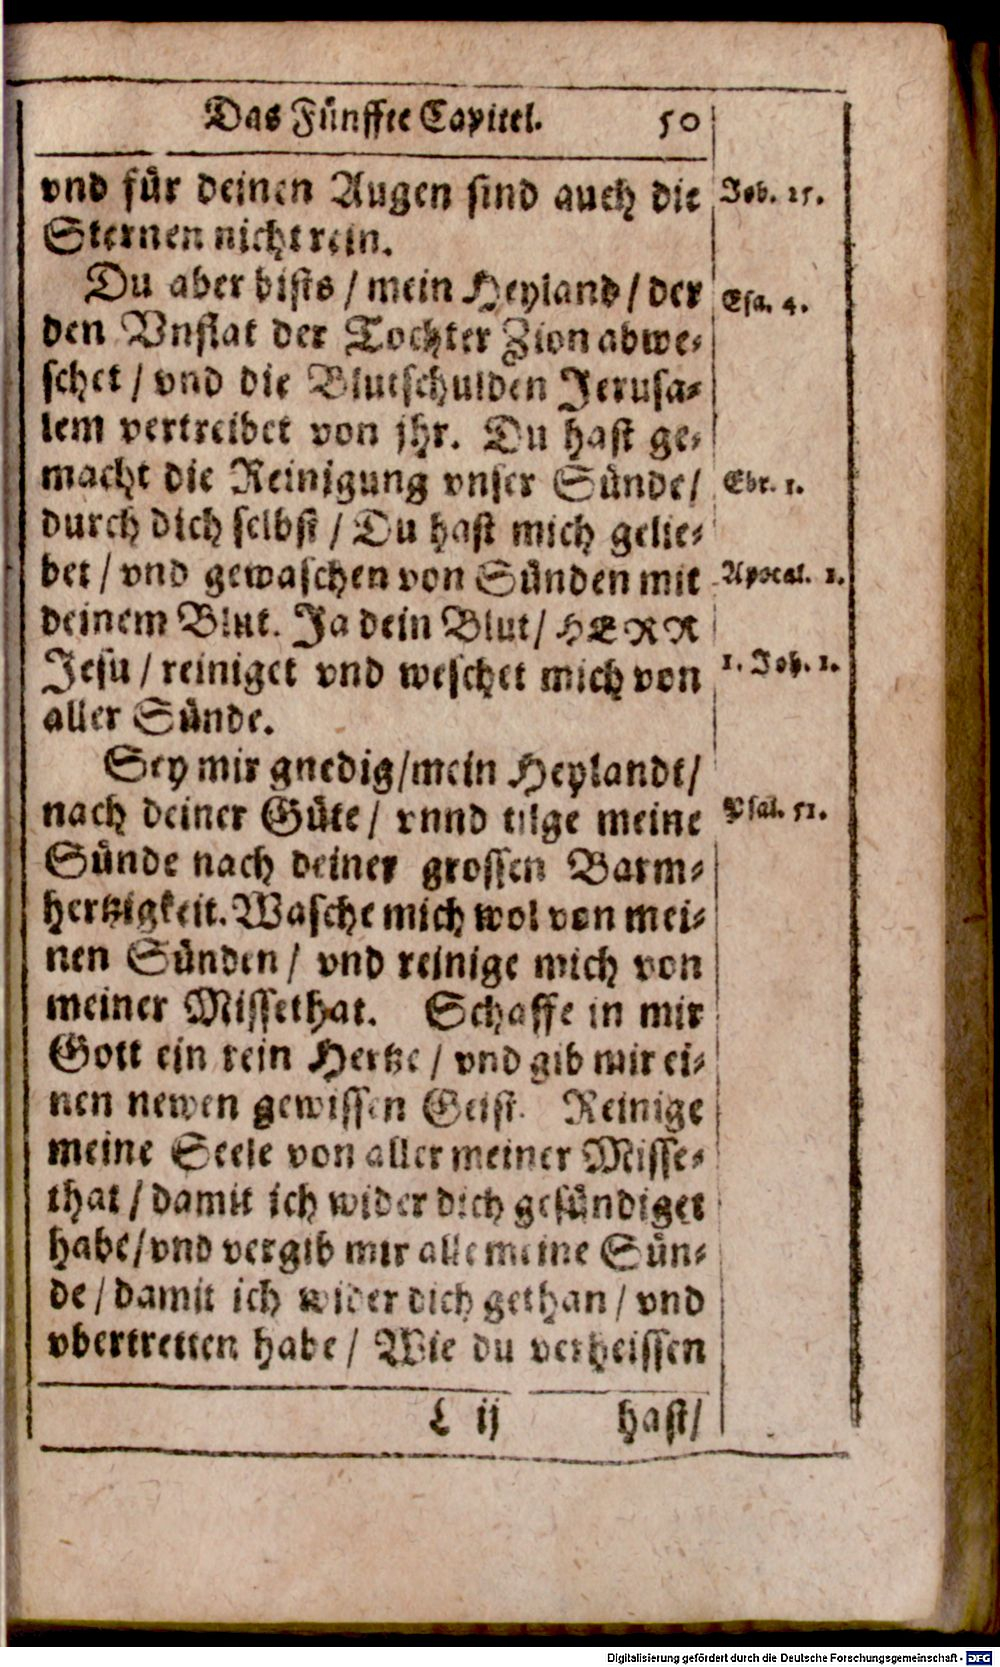 Das Fünffte Capitel. 50
vnd für deinen Augen sind auch die
Job. 25.
Sternen nicht rein.
Du aber bists / mein Heyland / der
Esa. 4.
den Vnflat der Tochter Zion abwe⸗
schet / vnd die Blutschulden Jerusa⸗
lem vertreibet von jhr. Du hast ge⸗
macht die Reinigung vnser Sünde /
Ebr. 1.
durch dich selbst / Du hast mich gelie⸗
bet / vnd gewaschen von Sünden mit
Apocal. 1.
deinem Blut. Ja dein Blut / HERR
Jesu / reiniget vnd weschet mich von
1. Joh. 1.
aller Sünde.
Sey mir gnedig / mein Heylandt /
nach deiner Güte / vnnd tilge meine
Psal. 51.
Sünde nach deiner grossen Barm⸗
hertzigkeit. Wasche mich wol von mei⸗
nen Sünden / vnd reinige mich von
meiner Missethat. Schaffe in mir
Gott ein rein Hertze / vnd gib mir ei⸗
nen newen gewissen Geist. Reinige
meine Seele von aller meiner Misse⸗
that / damit ich wider dich gesündiget
habe / vnd vergib mir alle meine Sün⸗
de / damit ich wider dich gethan / vnd
vbertretten habe / Wie du verheissen
L ij hast /
Digitalisierung gefördert durch die Deutsche Forschungsgemeinschaft - DFG